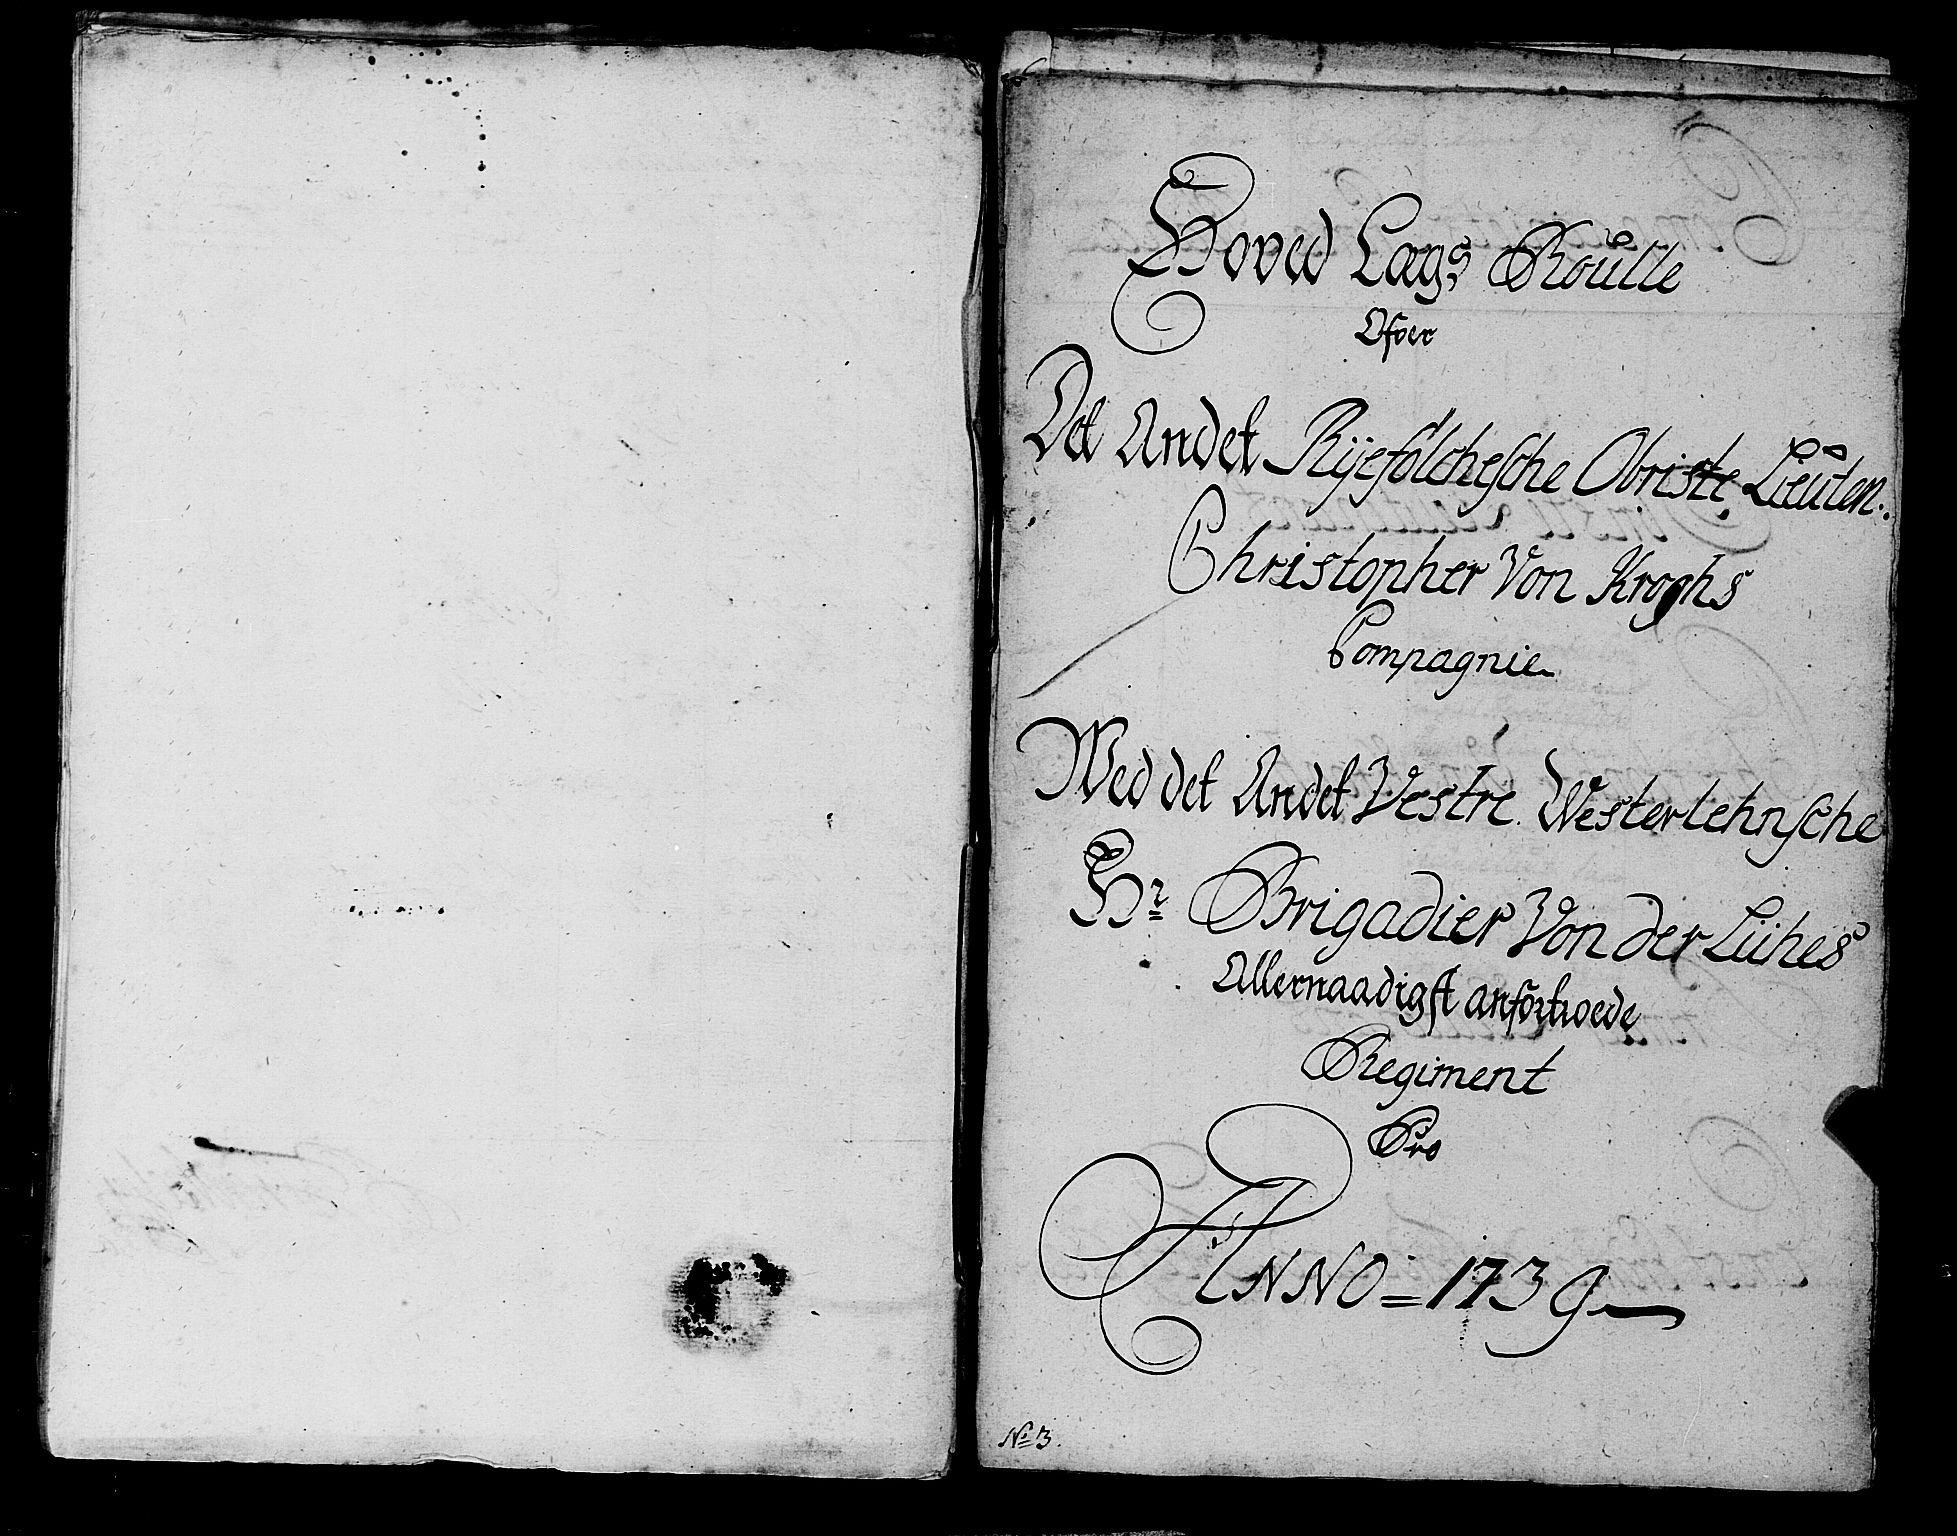 Hoved Lægs Roulle
Ofver
Det Andet Rÿefölchesche Obriste Lieuten:
Christopher Von Kroghs
Compagnie
Wed det Andet Vestre Westerlehnsche
Hr Brigadier Von der Lühes
Allernaadigst anfortroede
Regiment
Pro
ANNO = 1739
No 3.